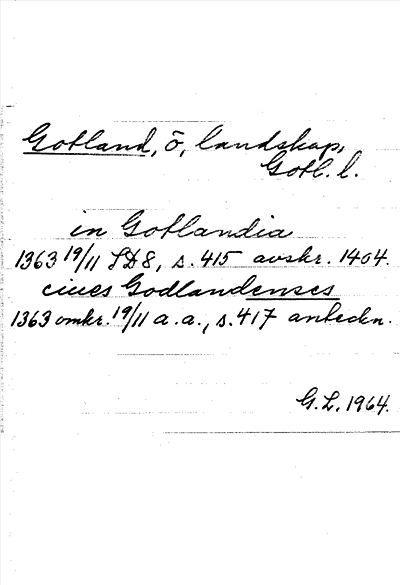 Gotland, ö, landskap,
Gotl. l.
in Gotlandia
1363 19/11 SD 8, s. 415 avskr. 1404.
ciues Godlandenses
1363 omkr. 19/11 a.a., s. 417 anteckn.
G.L. 1964.